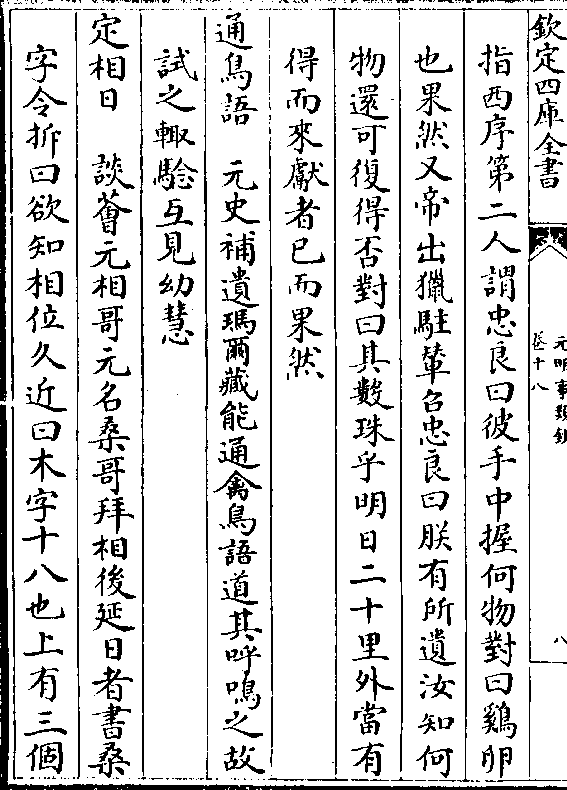 欽定四庫全書
元明事類鈔
卷十八
八
指西序第二人謂忠良曰彼手中握何物對曰鷄卵
也果然又帝出獵駐輦召忠良曰朕有所遺汝知何
物還可復得否對曰其數珠乎明日二十里外當有
得而來獻者已而果然
通鳥語　元史補遺瑪爾藏能通禽鳥語道其呼鳴之故
試之輙驗互見幼慧
定相日　談薈元相哥元名桑哥拜相後延日者書桑
字令拆曰欲知相位久近曰木字十八也上有三個